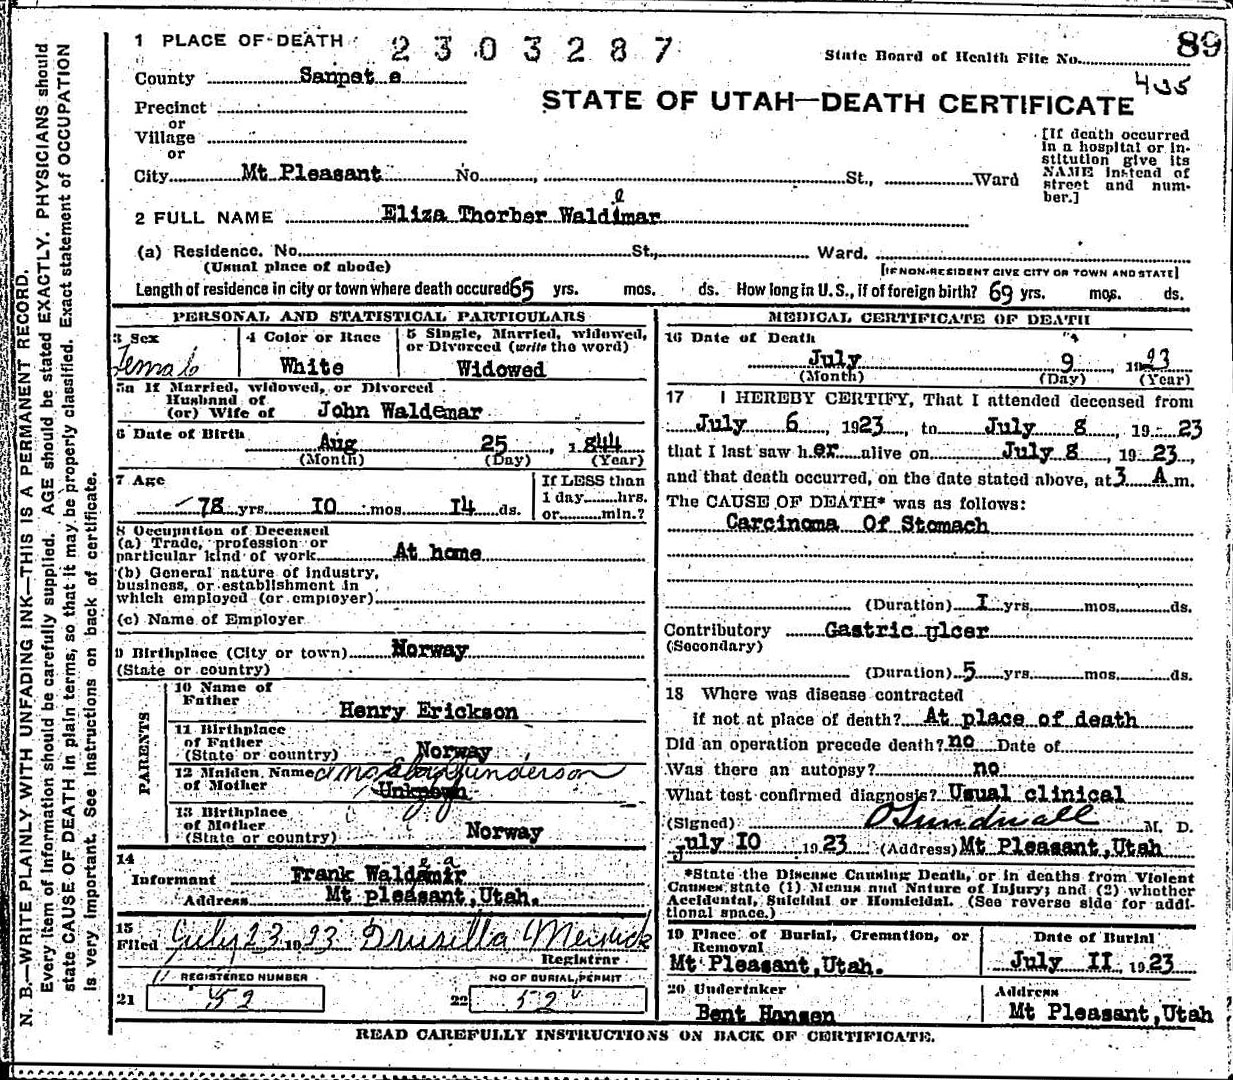 1 PLACE OF DEATH
2303287
State Board of Health File No. 89
435
County Sanpete
STATE OF UTAH—DEATH CERTIFICATE
Precinct
or
Village
or
City Mt Pleasant No. , St., Ward
[If death occurred
in a hospital or in-
stitution give its
NAME instead of
street and num-
ber.]
2 FULL NAME Eliza Thorber Waldimar
e
(a) Residence. No. St., Ward.
(Usual place of abode)
[IF NON-RESIDENT GIVE CITY OR TOWN AND STATE]
Length of residence in city or town where death occured 65 yrs. mos. ds. How long in U.S., if of foreign birth? 69 yrs. mos. ds.
PERSONAL AND STATISTICAL PARTICULARS
3 Sex
Female
4 Color or Race
White
5 Single, Married, widowed,
or Divorced (write the word)
Widowed
5a If Married, widowed, or Divorced
Husband of
(or) Wife of John Waldemar
6 Date of Birth Aug 25 1844
(Month) (Day) (Year)
7 Age
78 yrs. IO mos. I4 ds.
If LESS than
1 day hrs.
or min.?
8 Occupation of Deceased
(a) Trade, profession or
particular kind of work At home
(b) General nature of industry,
business, or establishment in
which employed (or employer)
(c) Name of Employer
9 Birthplace (City or town) Norway
(State or country)
PARENTS
10 Name of
Father Henry Erickson
11 Birthplace
of Father
(State or country) Norway
12 Maiden Name
of Mother Gunderson
Unknown
13 Birthplace
of Mother
(State or country) Norway
14
Informant Frank Waldamir
e a
Address Mt pleasant, Utah.
15
Filed July 23 1923 Drusilla Meyrick
Registrar
REGISTERED NUMBER
21 52
NO OF BURIAL PERMIT
22 52
MEDICAL CERTIFICATE OF DEATH
16 Date of Death
July 9 1923
(Month) (Day) (Year)
17 I HEREBY CERTIFY, That I attended deceased from
July 6, 1923, to July 8, 1923
that I last saw her alive on July 8, 1923,
and that death occurred, on the date stated above, at 3 A.m.
The CAUSE OF DEATH* was as follows:
Carcinoma Of Stomach
(Duration) I yrs. mos. ds.
Contributory Gastric ulcer
(Secondary)
(Duration) 5 yrs. mos. ds.
18 Where was disease contracted
if not at place of death? At place of death
Did an operation precede death? no Date of
Was there an autopsy? no
What test confirmed diagnosis? Usual clinical
(Signed) O Sundwall M. D.
july IO 1923 (Address) Mt Pleasant, Utah
*State the Disease Causing Death, or in deaths from Violent
Causes state (1) Means and Nature of Injury; and (2) whether
Accidental, Suicidal or Homicidal. (See reverse side for addi-
tional space.)
19 Place of Burial, Cremation, or
Removal
Mt Pleasant, Utah.
Date of Burial
July II, 1923
20 Undertaker
Bent Hansen
Address
Mt Pleasant, Utah
READ CAREFULLY INSTRUCTIONS ON BACK OF CERTIFICATE.
N. B.—WRITE PLAINLY WITH UNFADING INK—THIS IS A PERMANENT RECORD.
Every item of information should be carefully supplied. AGE should be stated EXACTLY. PHYSICIANS should
state CAUSE OF DEATH in plain terms, so that it may be properly classified. Exact statement of OCCUPATION
is very important. See instructions on back of certificate.